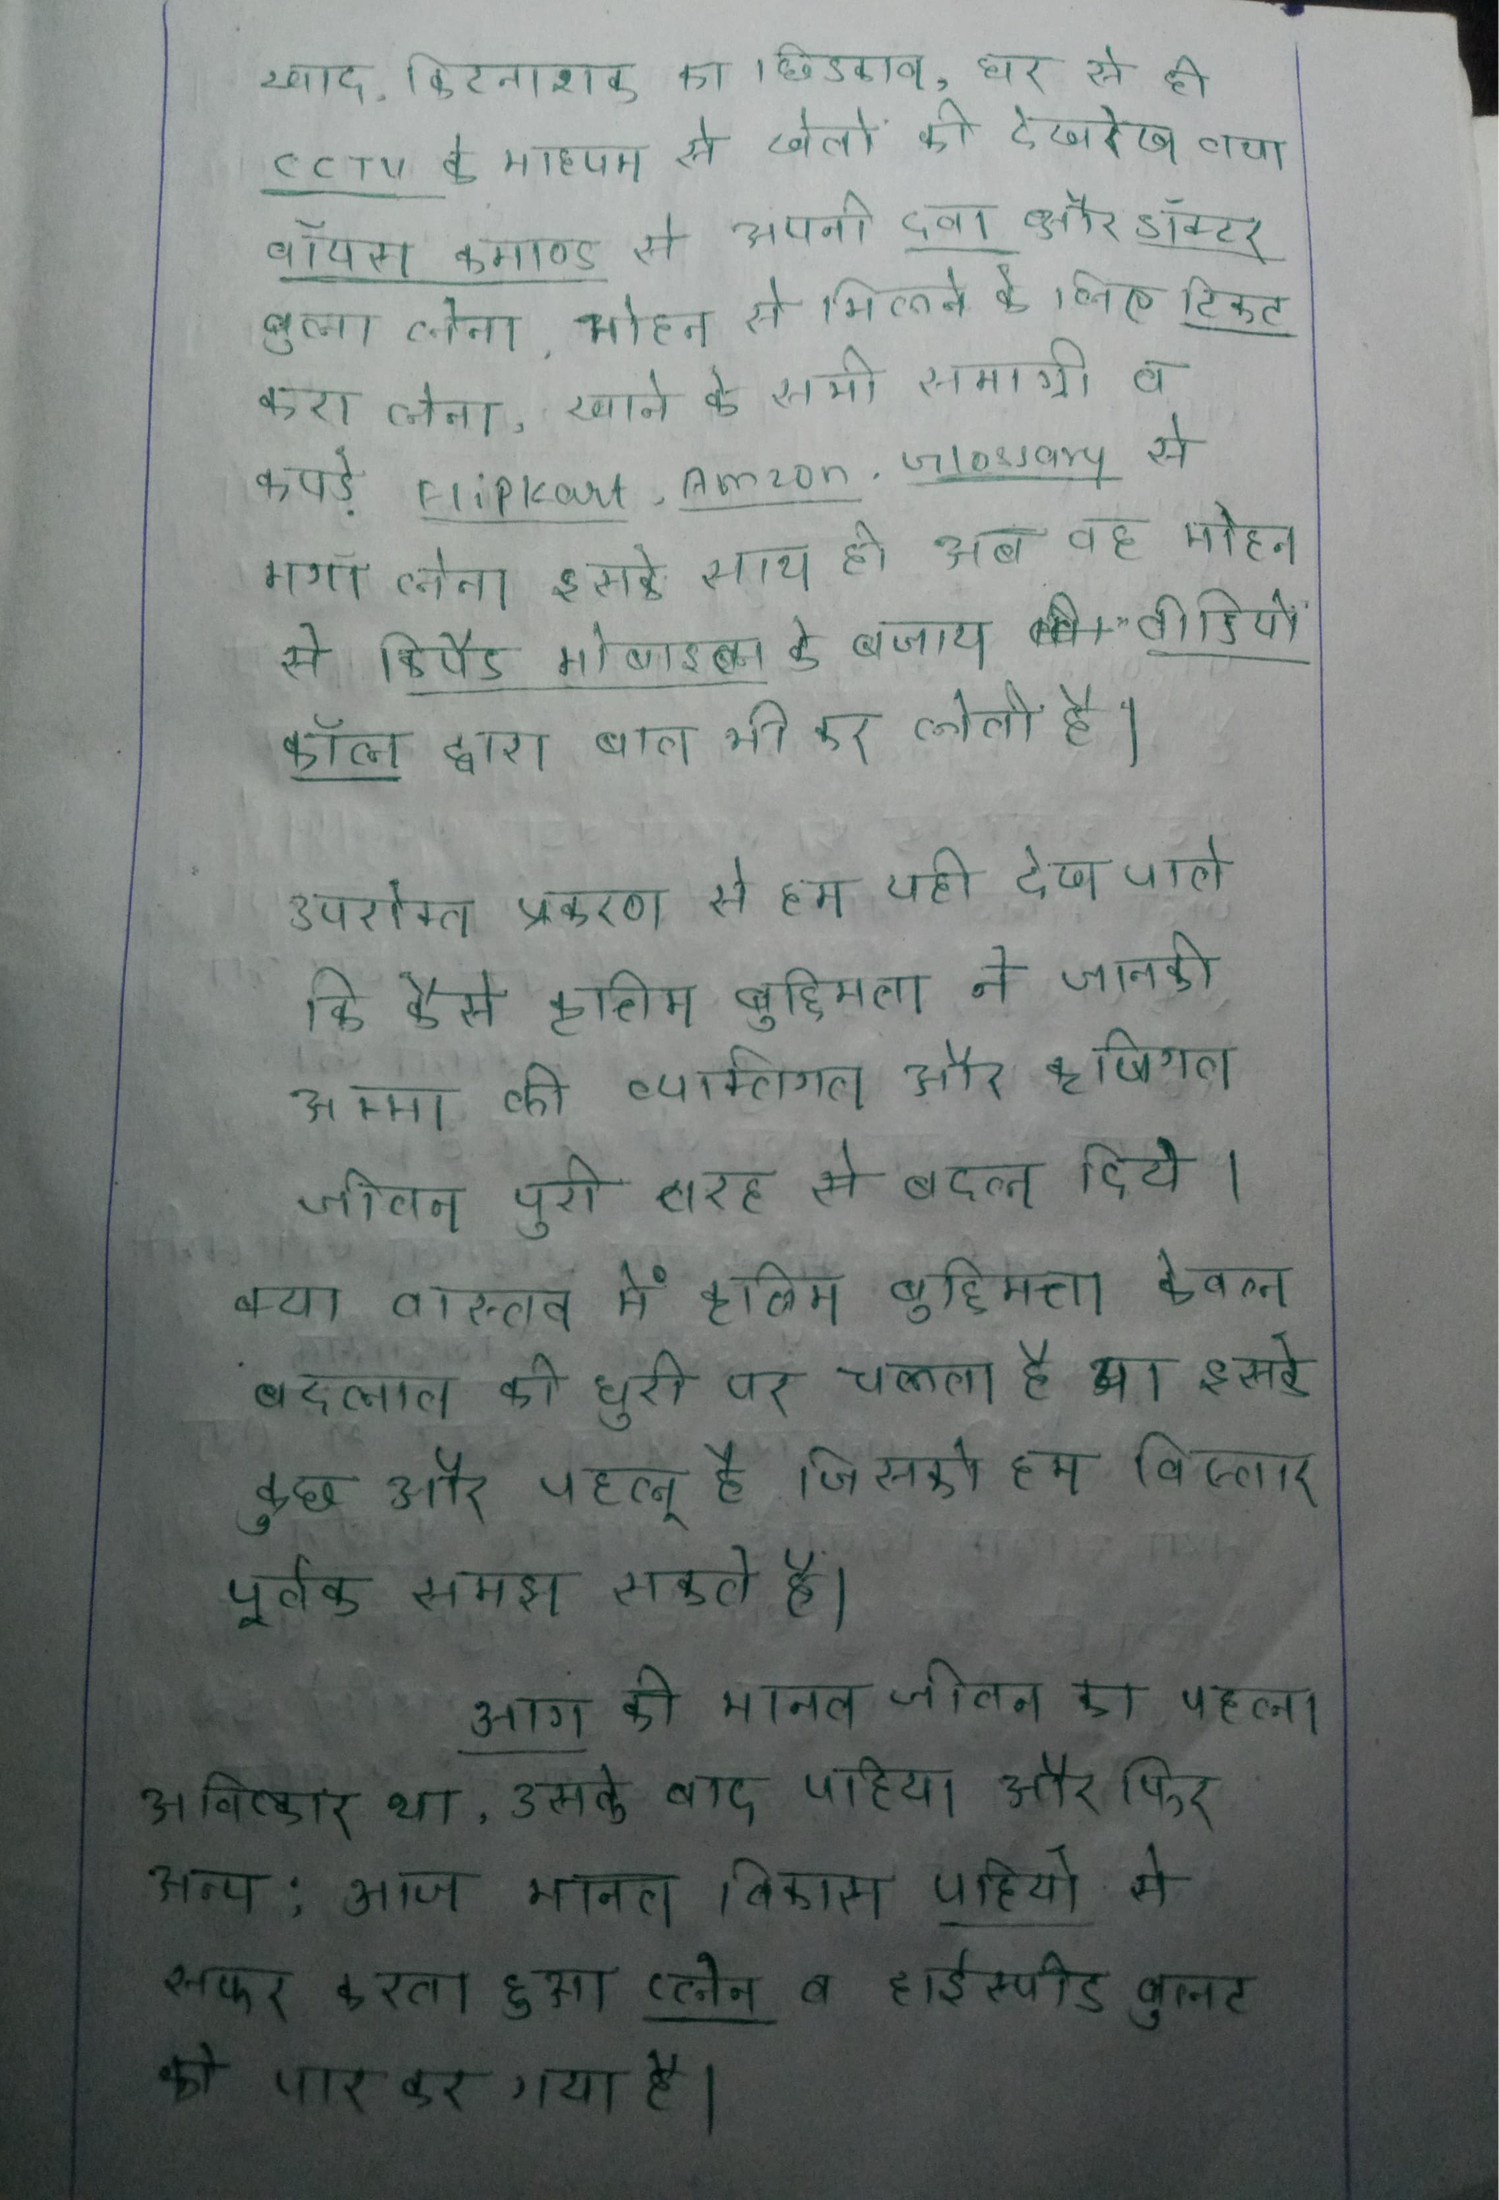 खाद, किटनाशक का छिडकाव, घर से ही
CCTV के माध्यम से खेतों की देखरेख तथा
वॉयस कमाण्ड से अपनी दवा और डॉक्टर
बुला लेना, मोहन से मिलने के लिए टिकट
करा लेना, खाने के सभी समाग्री व
कपड़े Flipkart, Amzon, Glossary से
मगाँ लेना इसके साथ ही अब वह मोहन
से किपैड मोबाइल के बजाय वीडियों
कॉल द्वारा बात भी कर लेती है।
उपरोक्त प्रकरण से हम यही देख पाते
कि कैसे कृत्रिम बुद्दिमता ने जानकी
अम्मा की व्यक्तिगत और कृषिगत
जीवन पुरी तरह से बदल दिये।
क्या वास्तव में कृत्रिम बुद्दिमत्ता केवल
बदलाव की धुरी पर चलता है या इसके
कुछ और पहलू है जिसको हम विस्तार
पूर्वक समझ सकते हैं।
आग की मानव जीवन का पहला
अविष्कार था, उसके बाद पाहिया और फिर
अन्य; आज मानव विकास पहियो से
सफर करता हुआ प्लेन व हाईस्पीड बुलट
को पार कर गया है।